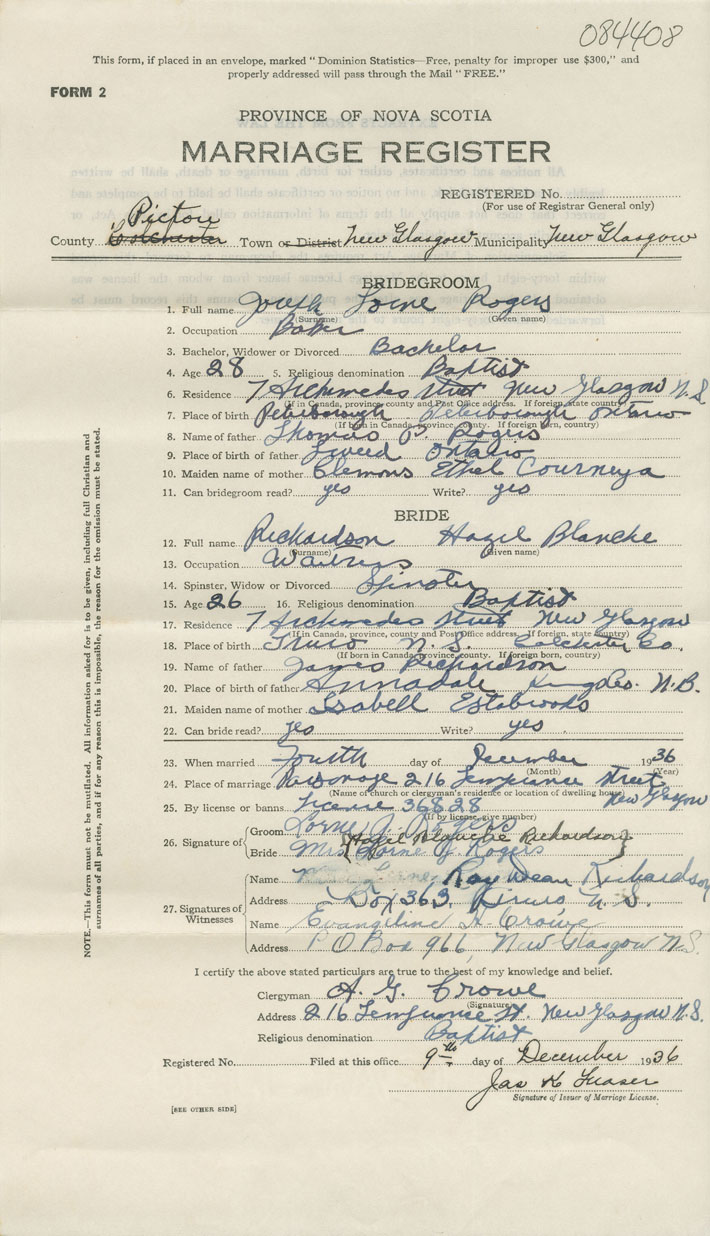 084408
This form, if placed in an envelope, marked "Dominion Statistics—Free, penalty for improper use $300," and
properly addressed will pass through the Mail "FREE."
FORM 2
PROVINCE OF NOVA SCOTIA
MARRIAGE REGISTER
REGISTERED No.
(For use of Registrar General only)
Pictou
County Colchester Town or District New Glasgow Municipality New Glasgow
BRIDEGROOM
1. Full name Joseph Lorne Rogers
(Surname) (Given name)
2. Occupation Baker
3. Bachelor, Widower or Divorced Bachelor
4. Age 28 5. Religious denomination Baptist
6. Residence 7 Archimedes Street New Glasgow N.S.
(If in Canada, province, county and Post Office address. If foreign, state country)
7. Place of birth Peterborough Peterborough Ontario
(If born in Canada, province, county. If foreign born, country)
8. Name of father Thomas P. Rogers
9. Place of birth of father Tweed Ontario
10. Maiden name of mother Clemons Ethel Courneya
11. Can bridegroom read? yes Write? yes
BRIDE
12. Full name Richardson Hazel Blanche
(Surname) (Given name)
13. Occupation Waitress
14. Spinster, Widow or Divorced Spinster
15. Age 26 16. Religious denomination Baptist
17. Residence 7 Archimedes Street New Glasgow
(If in Canada, province, county and Post Office address. If foreign, state country)
18. Place of birth Truro N.S. Colchester Co.
(If born in Canada, province, county. If foreign born, country)
19. Name of father James Richardson
20. Place of birth of father Annadale Kings Co. N.B.
21. Maiden name of mother Isabell Estabrooks
22. Can bride read? yes Write? yes
23. When married Fourth day of December 1936
(Month) (Year)
24. Place of marriage Parsonage 216 Temperance Street
(Name of church or clergyman's residence or location of dwelling house) New Glasgow
25. By license or banns License 36828
(If by license, give number)
26. Signature of Groom Lorne J. Rogers
(Hazel Blanche Richardson)
Bride Mrs Lorne J. Rogers
27. Signatures of Witnesses
Name Ray Dean Richardson
Address Box 363, Truro N.S.
Name Evangeline A. Crowe
Address P O Box 966, New Glasgow N.S.
I certify the above stated particulars are true to the best of my knowledge and belief.
Clergyman A. G. Crowe
(Signature)
Address 216 Temperance St. New Glasgow N.S.
Religious denomination Baptist
Registered No. Filed at this office 9th day of December 1936
Jas H Fraser
Signature of Issuer of Marriage License.
[SEE OTHER SIDE]
NOTE.—This form must not be mutilated. All information asked for is to be given, including full Christian and
surnames of all parties, and if for any reason this is impossible, the reason for the omission must be stated.